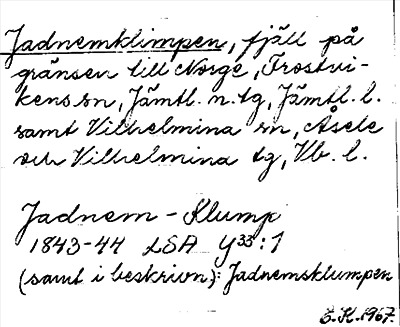 Jadnemklimpen, fjäll på
gränsen till Norge, Frostvi-
kens sn, Jämtl. n. tg, Jämtl. l.
samt Vilhelmina sn, Åsele
och Vilhelmina tg, Vb. l.
Jadnem - Klump
1843-44 LSA Y³³:1
(samt i beskrivn): Jadnemsklumpen
E.K. 1967.